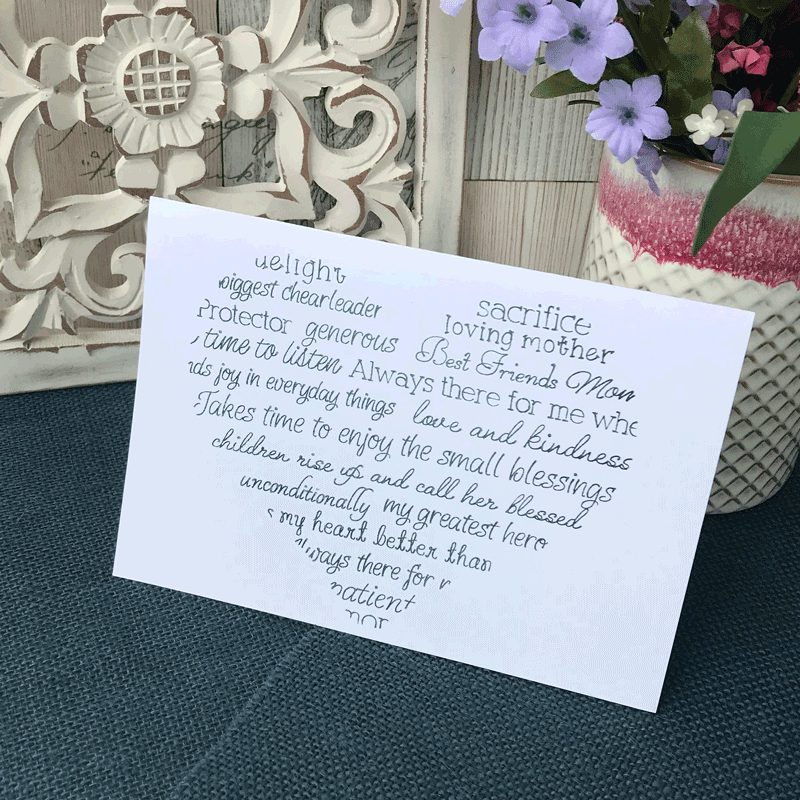 delight
biggest chearleader
sacrifice
Protector generous
loving mother
time to listen
Best Friends Mom
Always there for me whe
ds joy in everyday things
love and kindness
Takes time to enjoy the small blessings
children rise up and call her blessed
unconditionally my greatest hero
s my heart better than
always there for
patient